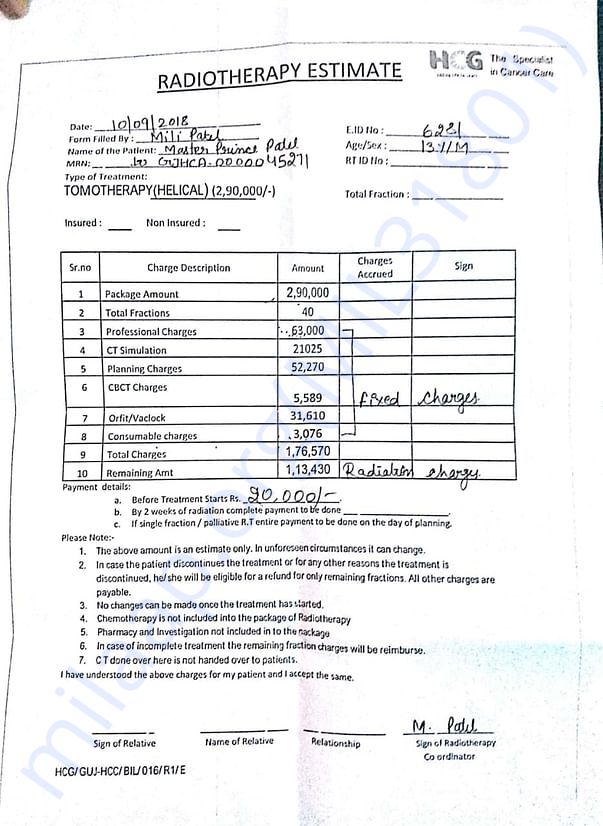 HCG The Specialist in Cancer Care
RADIOTHERAPY ESTIMATE
Date: 10/09/2018
E.ID No : 6231
Form Filled By : Mili Patel
Age/Sex : 13Y/M
Name of the Patient: Master Prince Patel
RT ID No :
MRN: GUJHCA-0000045271
Type of Treatment:
TOMOTHERAPY(HELICAL) (2,90,000/-)
Total Fraction :
Insured : Non Insured :
Sr.no Charge Description Amount Charges Accrued Sign
1 Package Amount 2,90,000
2 Total Fractions 40
3 Professional Charges 63,000
4 CT Simulation 21025
5 Planning Charges 52,270
6 CBCT Charges 5,589 fixed charges
7 Orfit/Vaclock 31,610
8 Consumable charges 3,076
9 Total Charges 1,76,570
10 Remaining Amt 1,13,430 Radiation charges
Payment details:
a. Before Treatment Starts Rs. 20,000/-
b. By 2 weeks of radiation complete payment to be done
c. If single fraction / palliative R.T entire payment to be done on the day of planning.
Please Note:-
1. The above amount is an estimate only. In unforeseen circumstances it can change.
2. In case the patient discontinues the treatment or for any other reasons the treatment is
discontinued, he/she will be eligible for a refund for only remaining fractions. All other charges are
payable.
3. No changes can be made once the treatment has started.
4. Chemotherapy is not included into the package of Radiotherapy
5. Pharmacy and Investigation not included in to the package
6. In case of incomplete treatment the remaining fraction charges will be reimburse.
7. C T done over here is not handed over to patients.
I have understood the above charges for my patient and I accept the same.
M. Patel
Sign of Relative Name of Relative Relationship Sign of Radiotherapy
Co ordinator
HCG/GUJ-HCC/BIL/016/R1/E